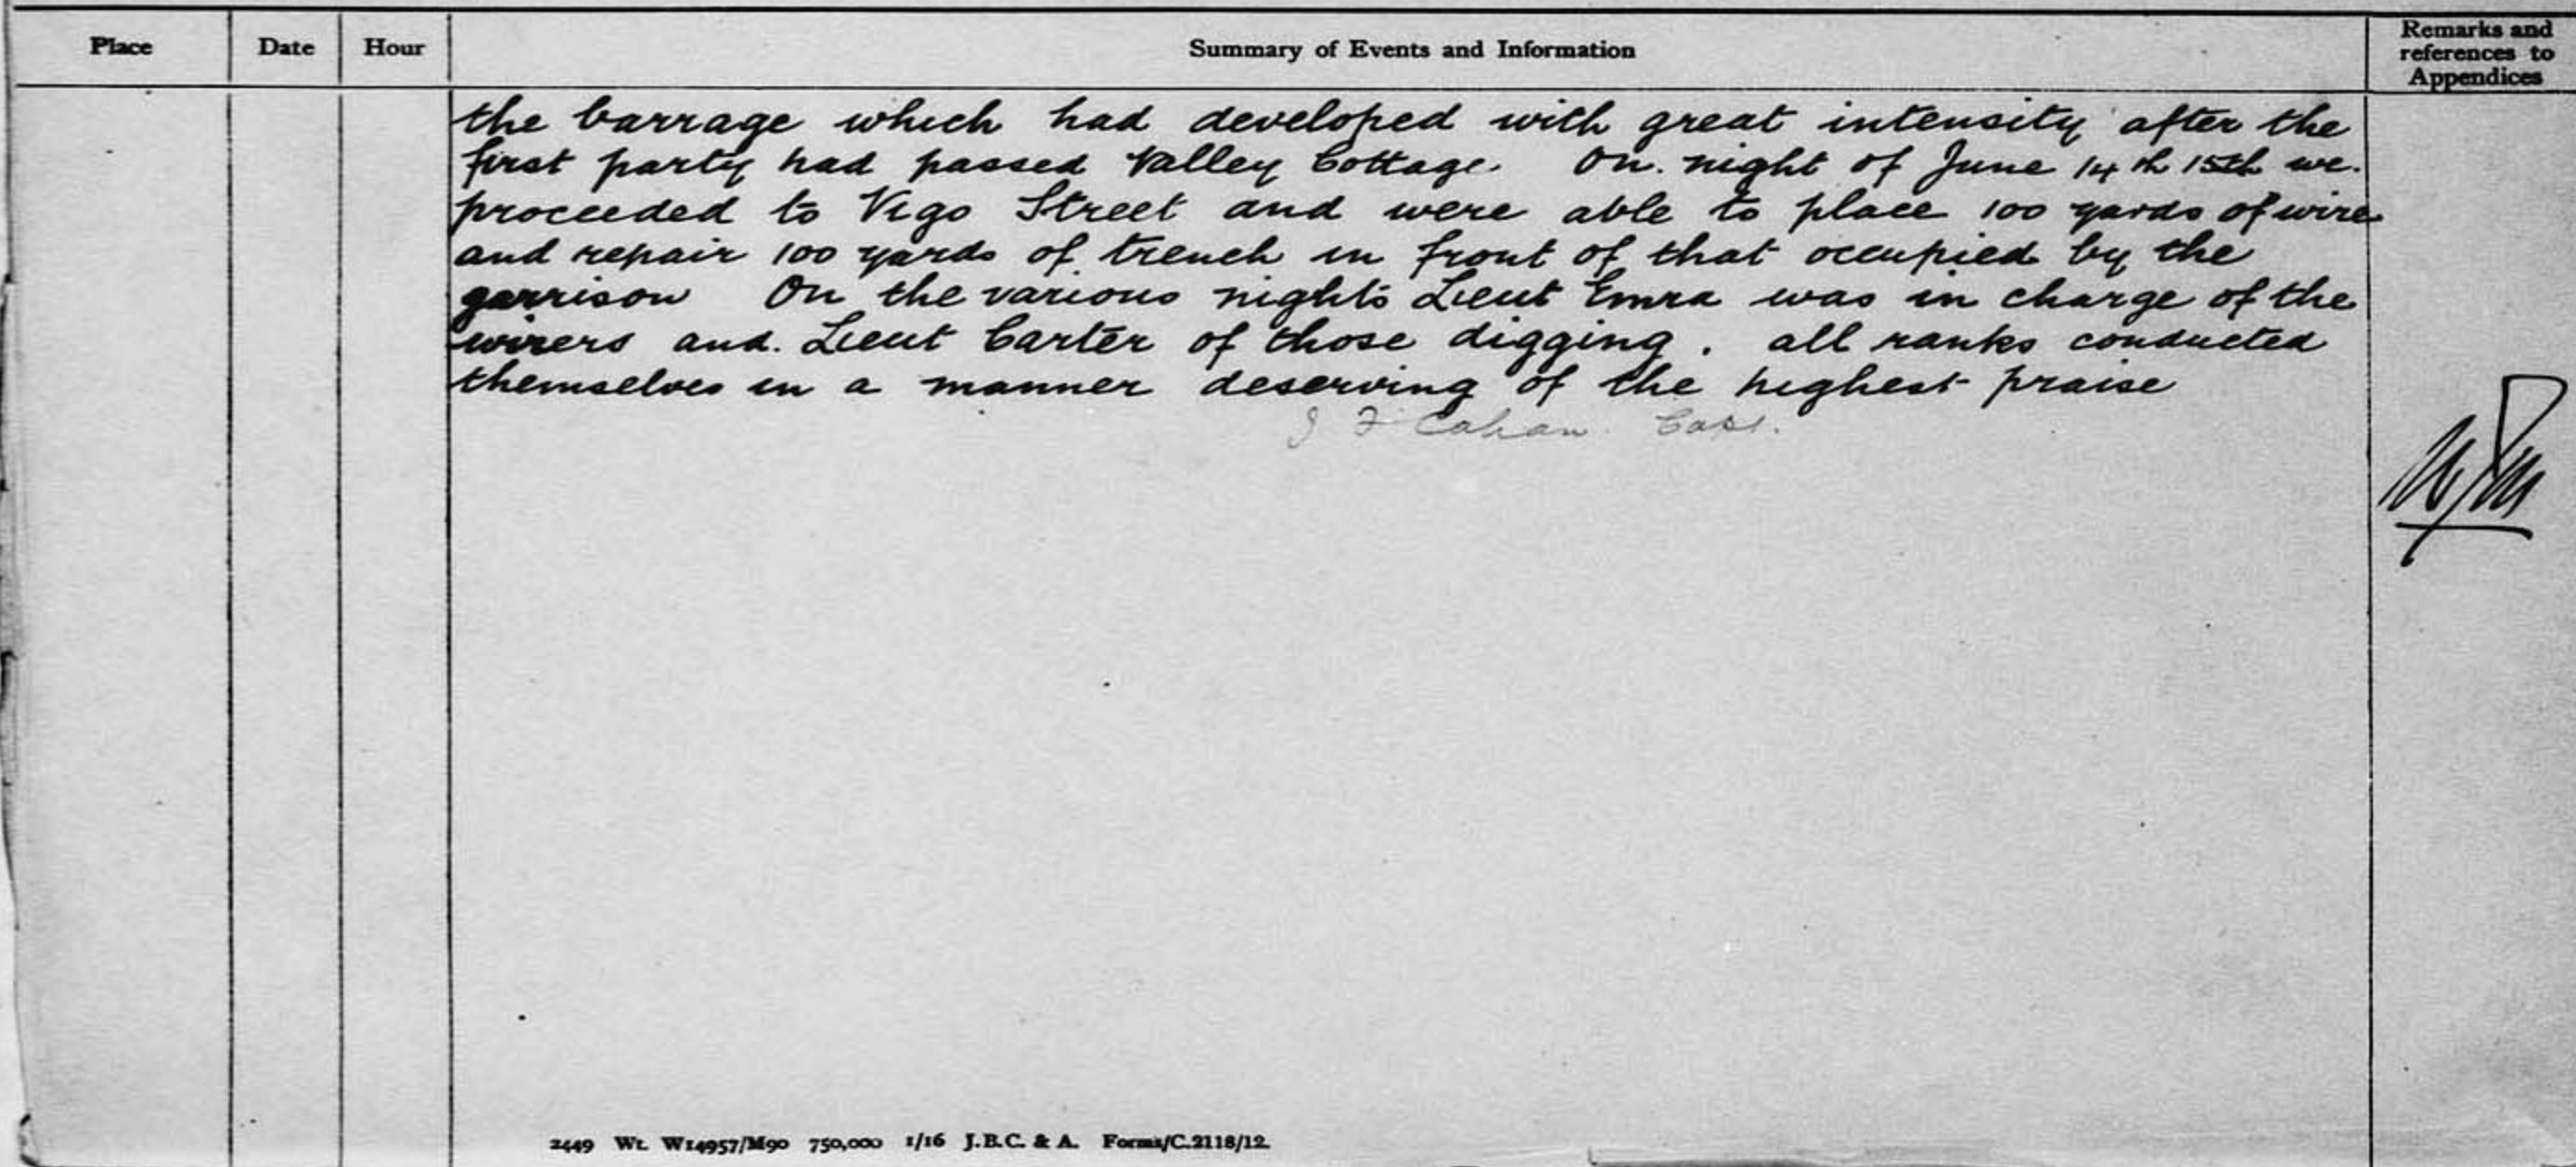 Place Date Hour Summary of Events and Information Remarks and
references to
Appendices
the barrage which had developed with great intensity after the
first party had passed Valley Cottage. On. night of June 14th 15th we.
proceeded to Vigo Street and were able to place 100 yards of wire
and repair 100 yards of trench in front of that occupied by the
garrison On the various nights Lieut Emra was in charge of the
wirers and. Lieut Carter of those digging. all ranks conducted
themselves in a manner deserving of the highest praise
J F Cahan. Capt.
2449 Wt. W14957/M90 750,000 1/16 J.B.C. & A. Forms/C.2118/12.